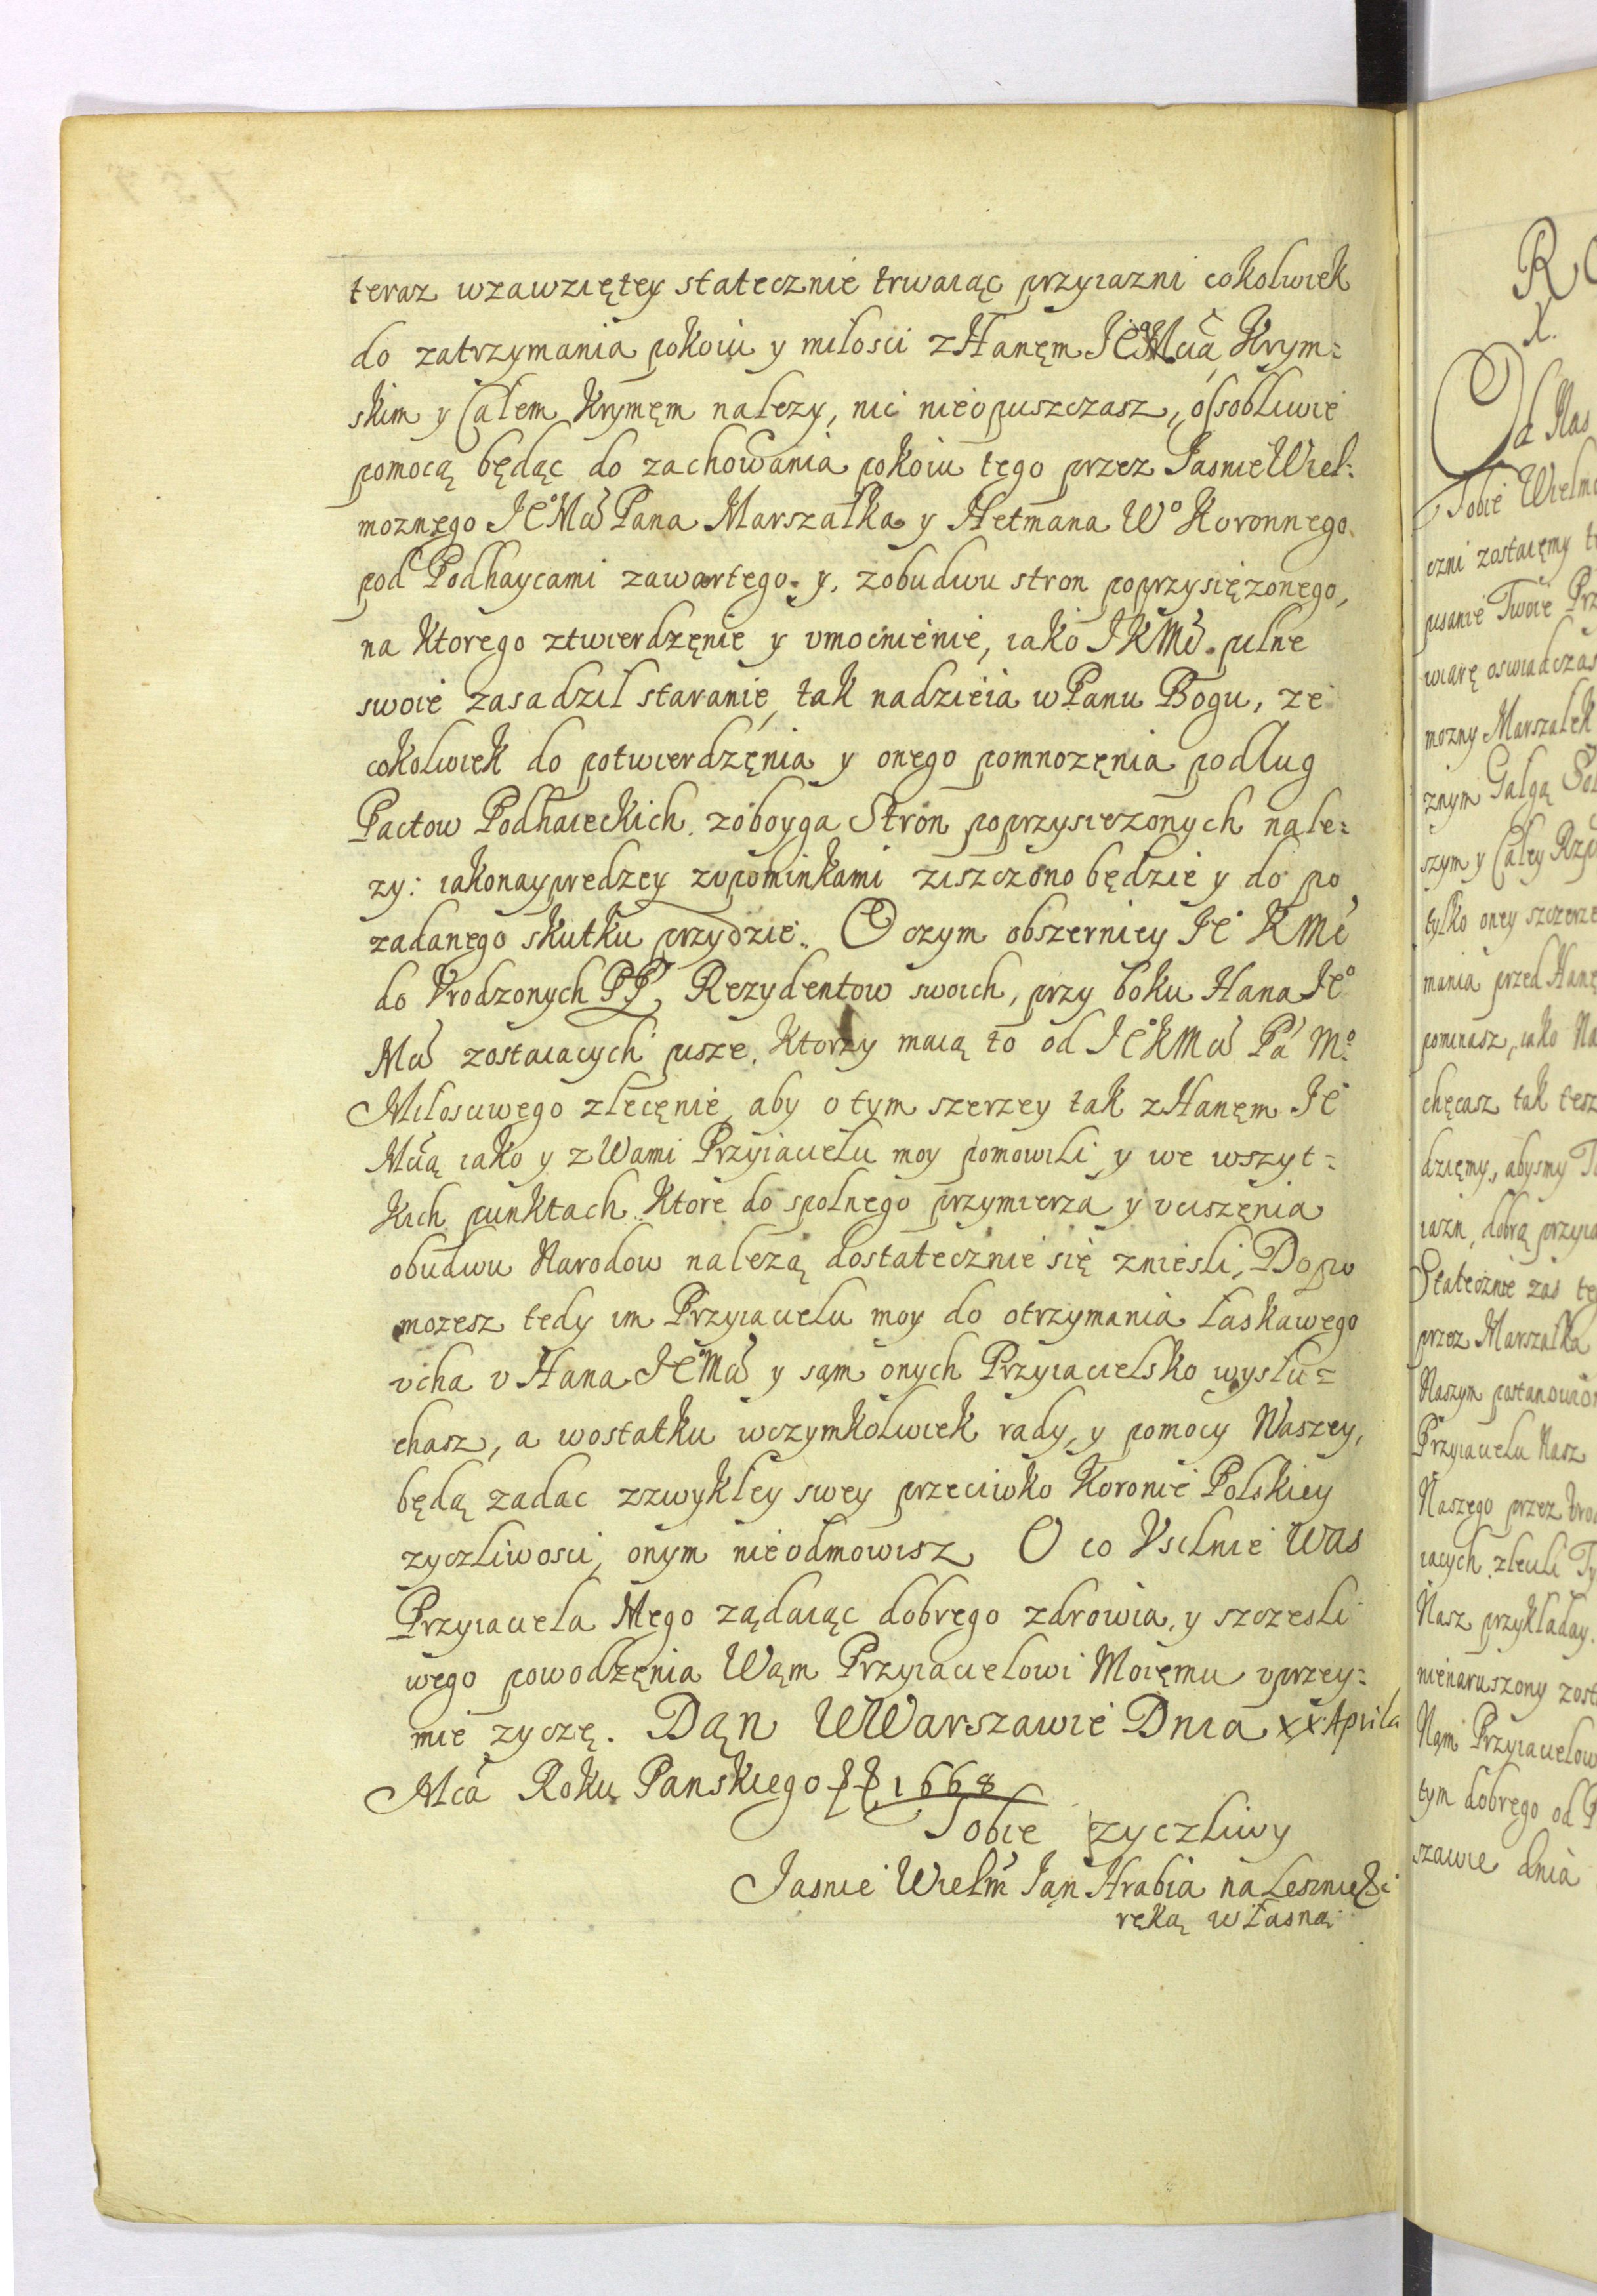 teraz wzawziętey statecznie trwaiąc przyiazni cokolwiek
do zatrzymania pokoiu y miłosci z Hanęm Krym=
skim y Całem Krymęm nalezy, nic nieopuszczasz, osobliwie
pomocą będąc do zachowania pokoiu tego przez JasnieWiel:
moznego Je° Mci Pana Marszałka y Hetmana W° Koronnego
pod Podhaycami zawartego y, zobudwu stron poprzysięzonego,
na ktorego ztwierdzęnie y vmocnienie, iako JKMć pilne
swoie zasadził staranie, tak nadzieia w Panu Bogu, ze
cokolwiek do potwierdzęnia y onego pomnozęnia podług
Pactow Podhaieckich zoboyga Stron poprzysiezonych nale=
zy: iakonayprędzey zupominkami ziszczono będzie y do po
ządanego skutku przydzie. O czym obszerniey Je° KMć
do Vrodzonych PP, Rezydentow swoich, przy boku Hana Je°
Mci zostaiących pisze, Ktorzy maią to od Je° KMci Pa M°
Miłosciwego zlecęnie, aby o tym szerzey tak z Hanęm Je°
Mcią iako y z Wami Przyiacielu moy pomowili y we wszyt=
kich punktach Ktore do spolnego przymierza y vciszęnia
obudwu Narodow nalezą dostatecznie się zniesli, Dopo
mozesz tedy im Przyiacielu moy do otrzymania łaskawego
vcha v Hana Je° Mci y sąm onych Przyiacielsko wysłu=
chasz, a wostatku wczymkolwiek rady, y pomocy Waszey,
będą ządac zzwykłey swey przeciwko Koronie Polskiey
zyczliwosci, onym nieodmowisz O co Vsilnie Was
Przyiaciela Mego ządaiąc dobrego zdrowia, y szczesli
wego powodzęnia Wąm Przyiacielowi Moięmu vprzey=
mie zyczę. Dąn W Warszawie Dnia XX Aprila
Mca Roku Panskiego 1668
Tobie zyczliwy
Jasnie Wielm Ian Hrabia na Lesznie
ręką własną
Od Nas
Tobie
czni zostaięmy
pisanie Twoie
wiarę oswiadczas
mozny Marszałek
znym Gałgą
szym y Całey
tylko oney szczerze
mania przed
pominasz, iako
chęcasz tak tesz
dzięmy, abysmy
iazn, dobrą
Statecznie zas
przez Marszałka
Naszym
Przyiacielu Nasz
Naszego przez
iących zlecili
Nasz przykładay
nienaruszony
Nąmi
tym dobrego od
szawie dnia